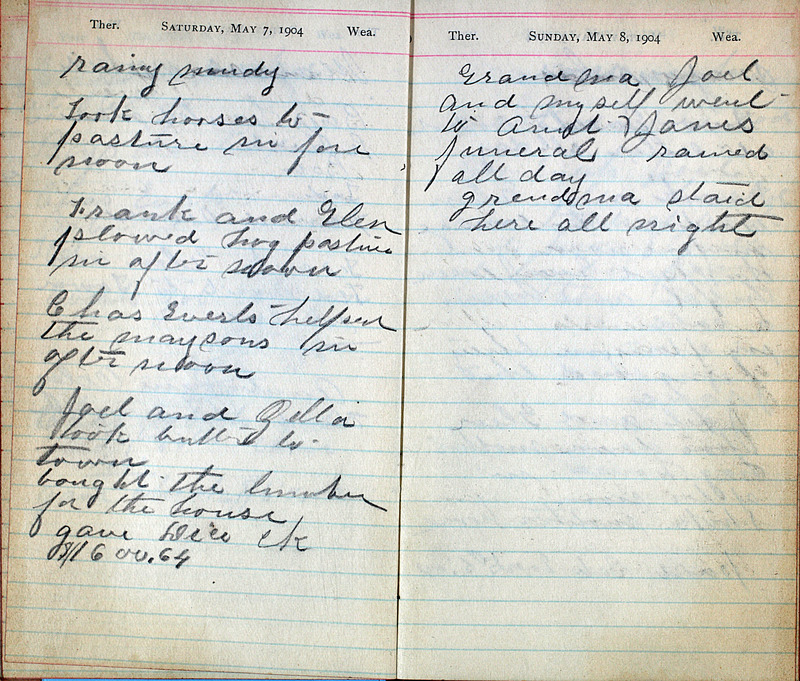 Ther. SATURDAY, MAY 7, 1904 Wea.
rainy mudy
Took horses to
pasture in fore
noon
Frank and Glen
plowed hog pasture
in after noown
Chas Everts helped
the maysons in
after noown
Joel and Zella
took butter to
town
bought the lumber
for the house
gave ck
$1600.64
Ther. SUNDAY, MAY 8, 1904 Wea.
Grandma Joel
and myself went
to Aunt Janes
funeral rained
all day
grandma staid
here all night